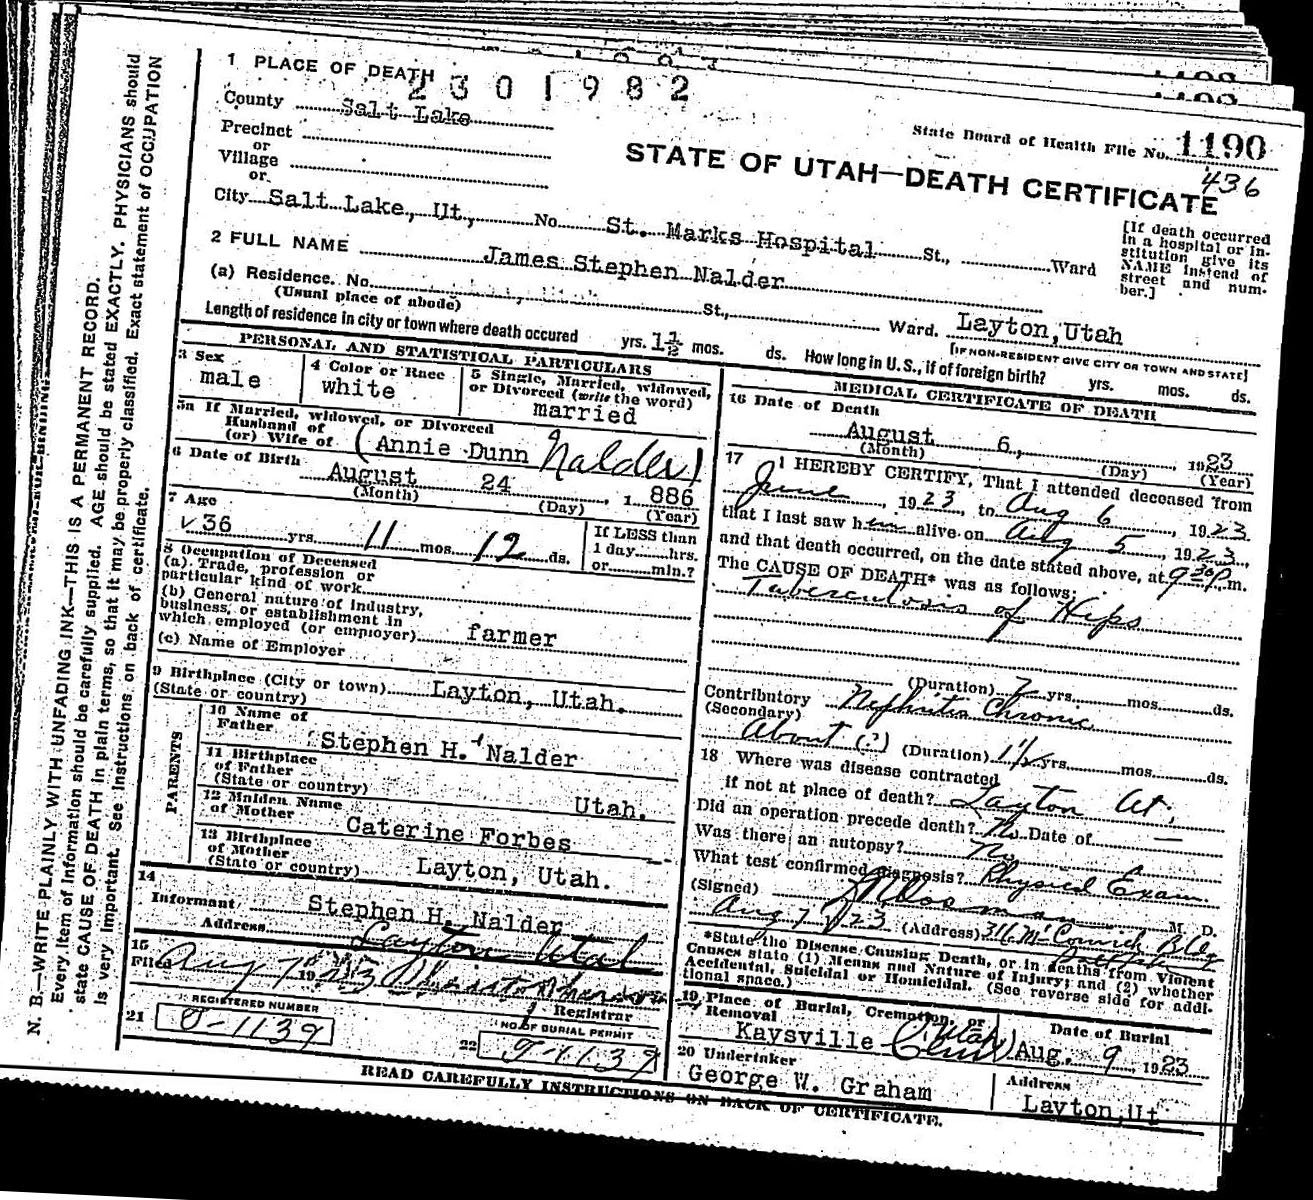 1 PLACE OF DEATH
2301982
County Salt Lake
State Board of Health File No. 1190
Precinct
or
Village
or
STATE OF UTAH—DEATH CERTIFICATE
436
City Salt Lake, Ut., No. St. Marks Hospital St., Ward
[If death occurred in a hospital or institution give its NAME instead of street and number.]
2 FULL NAME James Stephen Nalder
(a) Residence. No. St., Ward. Layton, Utah
(Usual place of abode)
[IF NON-RESIDENT GIVE CITY OR TOWN AND STATE]
Length of residence in city or town where death occured yrs. 1½ mos. ds. How long in U.S., if of foreign birth? yrs. mos. ds.
PERSONAL AND STATISTICAL PARTICULARS
3 Sex
male
4 Color or Race
white
5 Single, Married, widowed, or Divorced (write the word)
married
5a If Married, widowed, or Divorced
Husband of
(or) Wife of (Annie Dunn Nalder)
6 Date of Birth
August 24, 1886
(Month) (Day) (Year)
7 Age
36 yrs. 11 mos. 12 ds.
If LESS than
1 day hrs.
or min.?
8 Occupation of Deceased
(a). Trade, profession or
particular kind of work
(b) General nature of Industry,
business, or establishment in
which employed (or employer) farmer
(c) Name of Employer
9 Birthplace (City or town) Layton, Utah.
(State or country)
PARENTS
10 Name of
Father Stephen H. Nalder
11 Birthplace
of Father
(State or country) Utah.
12 Maiden Name
of Mother Caterine Forbes
13 Birthplace
of Mother
(State or country) Layton, Utah.
14
Informant Stephen H. Nalder
Address Layton Utah
15
Filed Aug 7 1923
Registrar
REGISTERED NUMBER
21 O-1139
NO. OF BURIAL PERMIT
22 1139
MEDICAL CERTIFICATE OF DEATH
16 Date of Death
August 6, 1923
(Month) (Day) (Year)
17 I HEREBY CERTIFY, That I attended deceased from
June, 1923, to Aug 6 1923
that I last saw him alive on Aug 5, 1923,
and that death occurred, on the date stated above, at 9 30 P. m.
The CAUSE OF DEATH* was as follows:
Tuberculosis of Hips
(Duration) 7 yrs. mos. ds.
Contributory Nephritis Chronic
(Secondary)
About (?) (Duration) 1½ yrs. mos. ds.
18 Where was disease contracted
if not at place of death? Layton Ut.
Did an operation precede death? No Date of —
Was there an autopsy? No
What test confirmed diagnosis? Physical Exam.
(Signed) M. D.
Aug 7 1923 (Address) 316 McCornick Bldg
*State the Disease Causing Death, or in deaths from Violent
Causes state (1) Means and Nature of Injury; and (2) whether
Accidental, Suicidal or Homicidal. (See reverse side for additional space.)
19 Place of Burial, Cremation, or
Removal
Kaysville (Utah)
Date of Burial
Aug. 9 1923
20 Undertaker
George W. Graham
Address
Layton, Ut
READ CAREFULLY INSTRUCTIONS ON BACK OF CERTIFICATE.
N. B.—WRITE PLAINLY WITH UNFADING INK—THIS IS A PERMANENT RECORD.
Every item of information should be carefully supplied. AGE should be stated EXACTLY. PHYSICIANS should
state CAUSE OF DEATH in plain terms, so that it may be properly classified. Exact statement of OCCUPATION
is very important. See instructions on back of certificate.